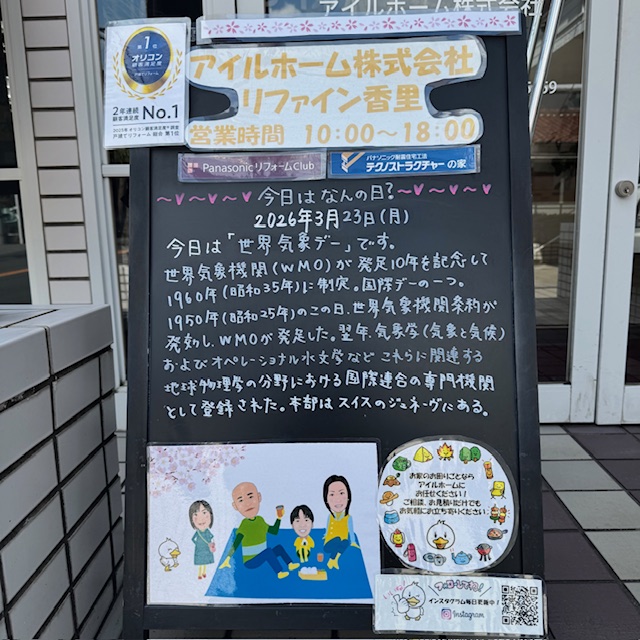 アイルホーム株式会社
第1位
オリコン
顧客満足度
2年連続
顧客満足度
No.1
2025年 オリコン顧客満足度®調査
戸建てリフォーム 総合 第1位
アイルホーム株式会社
リファイン香里
営業時間 10:00〜18:00
Panasonic リフォーム Club
パナソニック耐震住宅工法
テクノストラクチャーの家
今日はなんの日?
2026年3月23日(月)
今日は「世界気象デー」です。
世界気象機関(WMO)が発足10年を記念して
1960年(昭和35年)に制定。国際デーの一つ。
1950年(昭和25年)のこの日、世界気象機関条約が
発効し、WMOが発足した。翌年、気象学(気象と気候)
およびオペレーショナル水文学など これらに関連する
地球物理学の分野における国際連合の専門機関
として登録された。本部はスイスのジュネーヴにある。
お家のお困りごとなら
アイルホームに
お任せください!
ご相談、お見積りだけでも
お気軽にお立ち寄りください
フォローしてネ!
インスタグラム毎日更新中!
Instagram